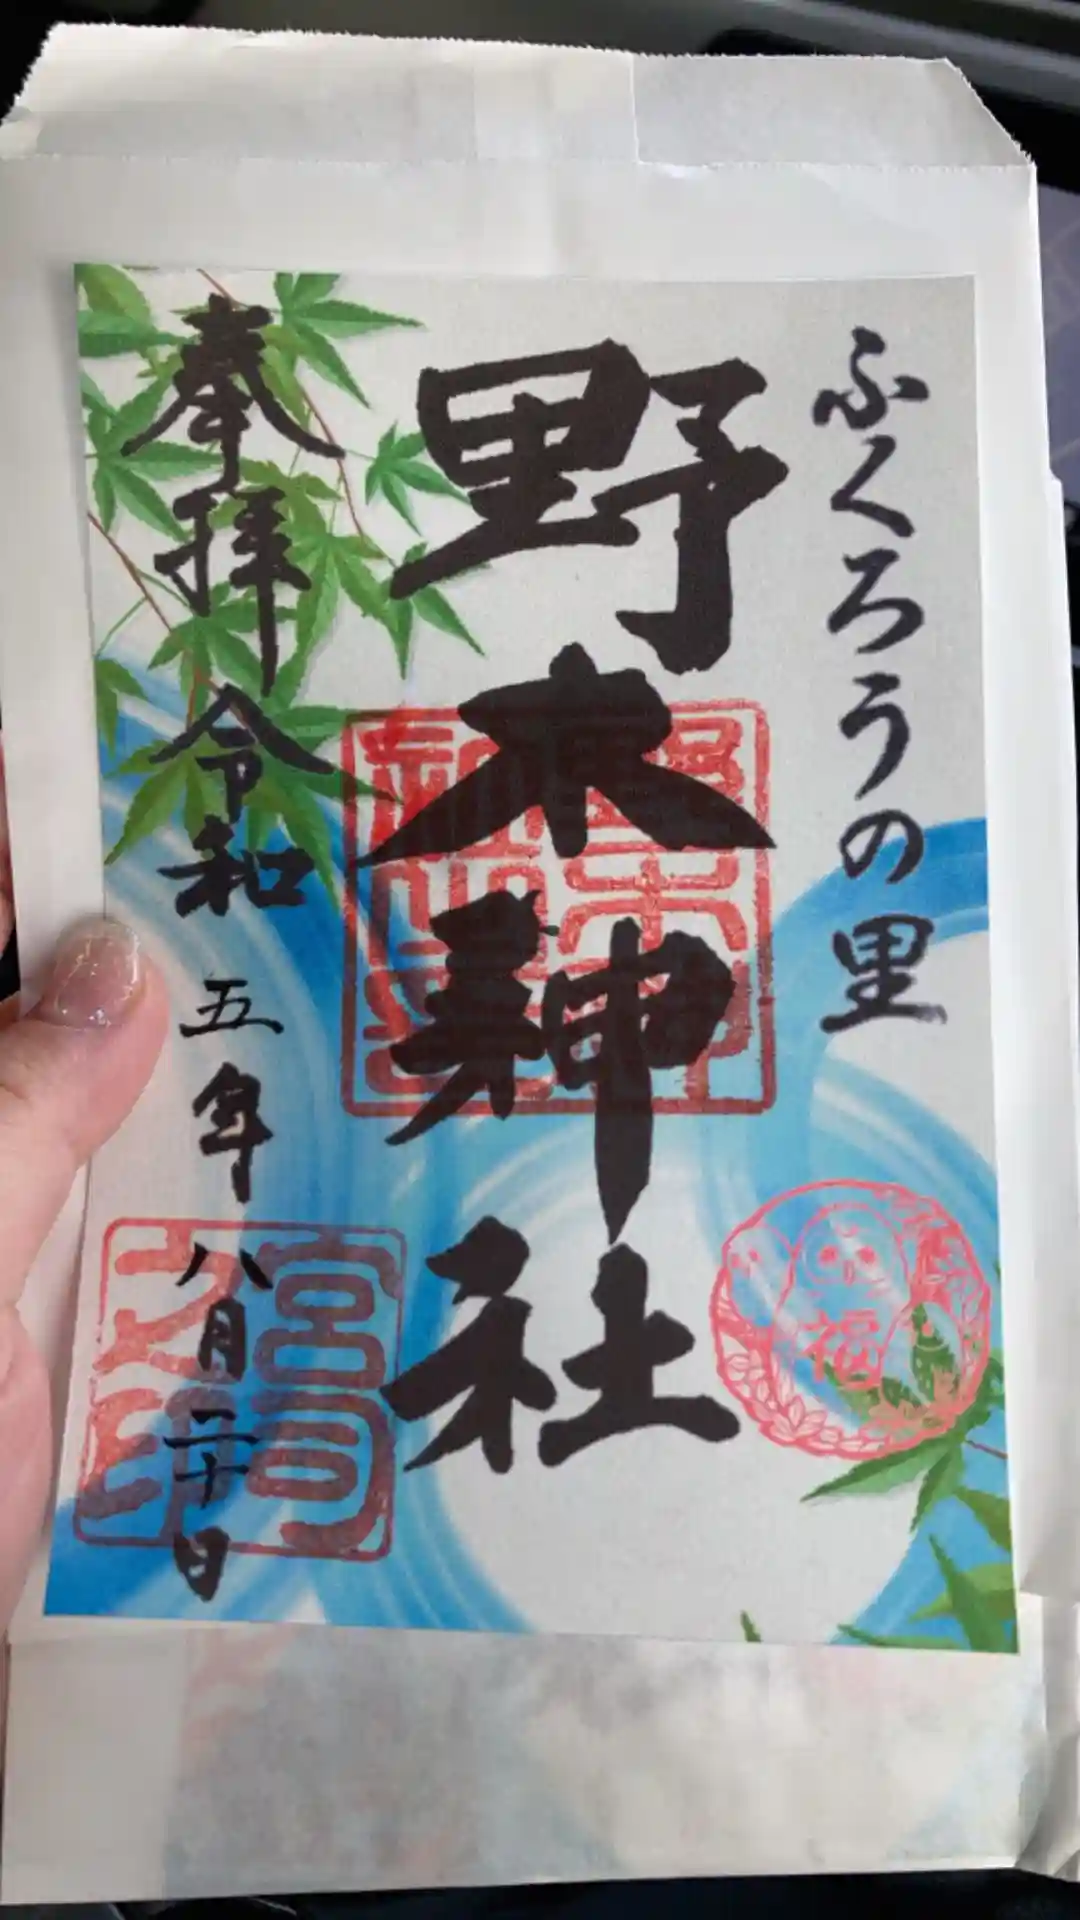 ふくろうの里
野木神社
奉拝 令和五年八月二十日
野木神社
宮司之印
福